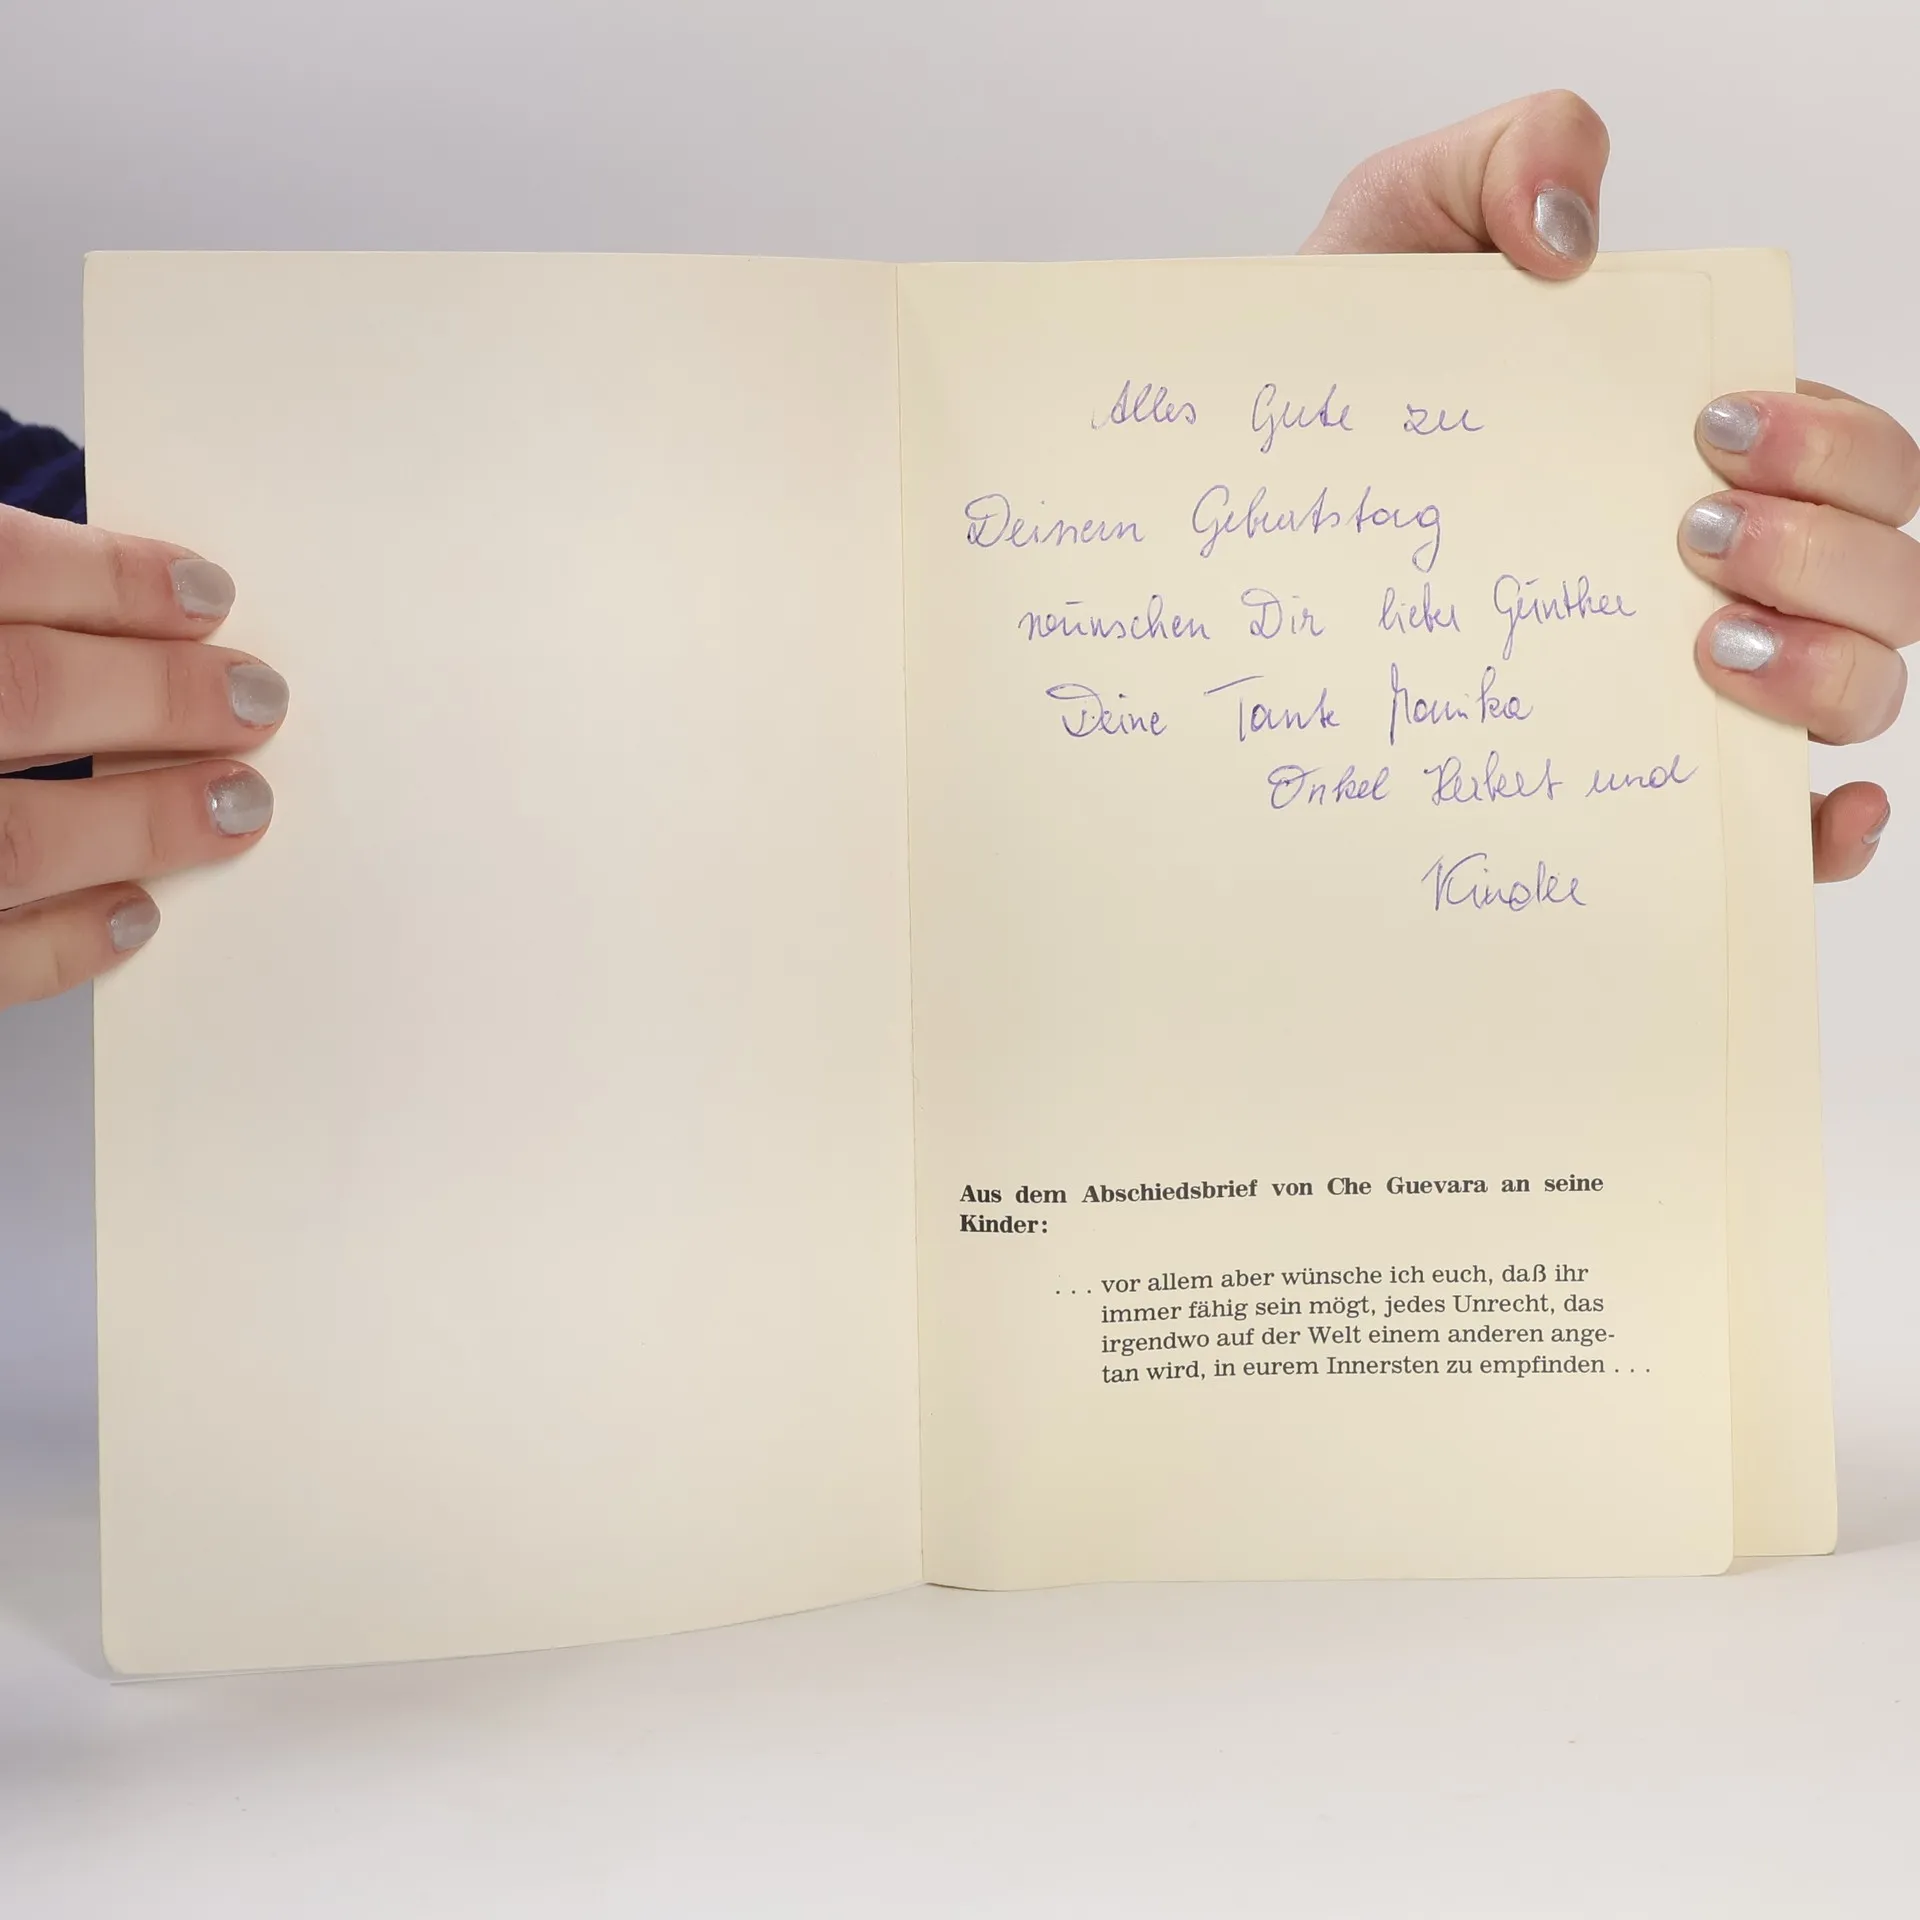 Alles Gute zu
Deinem Geburtstag
wünschen Dir lieber Günther
Deine Tante Monika
Onkel Herbert und
Kinder
Aus dem Abschiedsbrief von Che Guevara an seine
Kinder:
. . . vor allem aber wünsche ich euch, daß ihr
immer fähig sein mögt, jedes Unrecht, das
irgendwo auf der Welt einem anderen ange-
tan wird, in eurem Innersten zu empfinden . . .